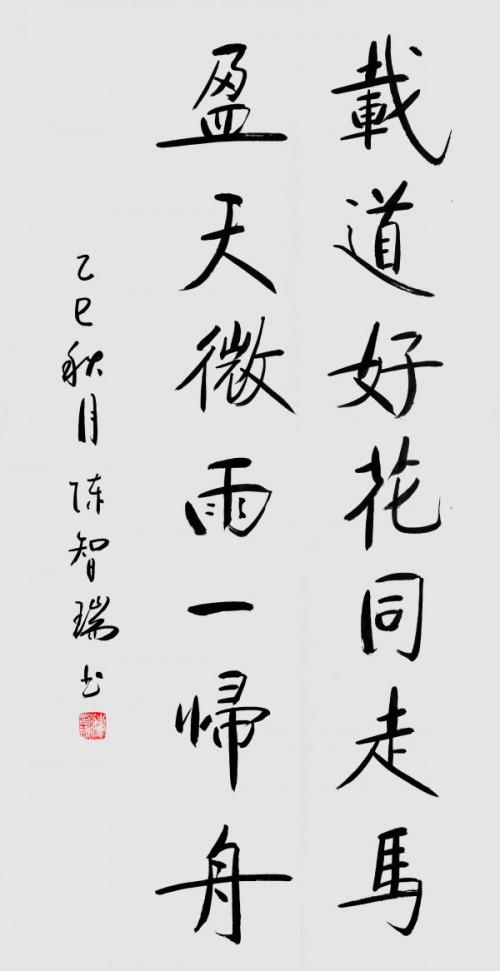 載道好花同走馬
盈天微雨一帰舟
乙巳秋月 陈智瑞书